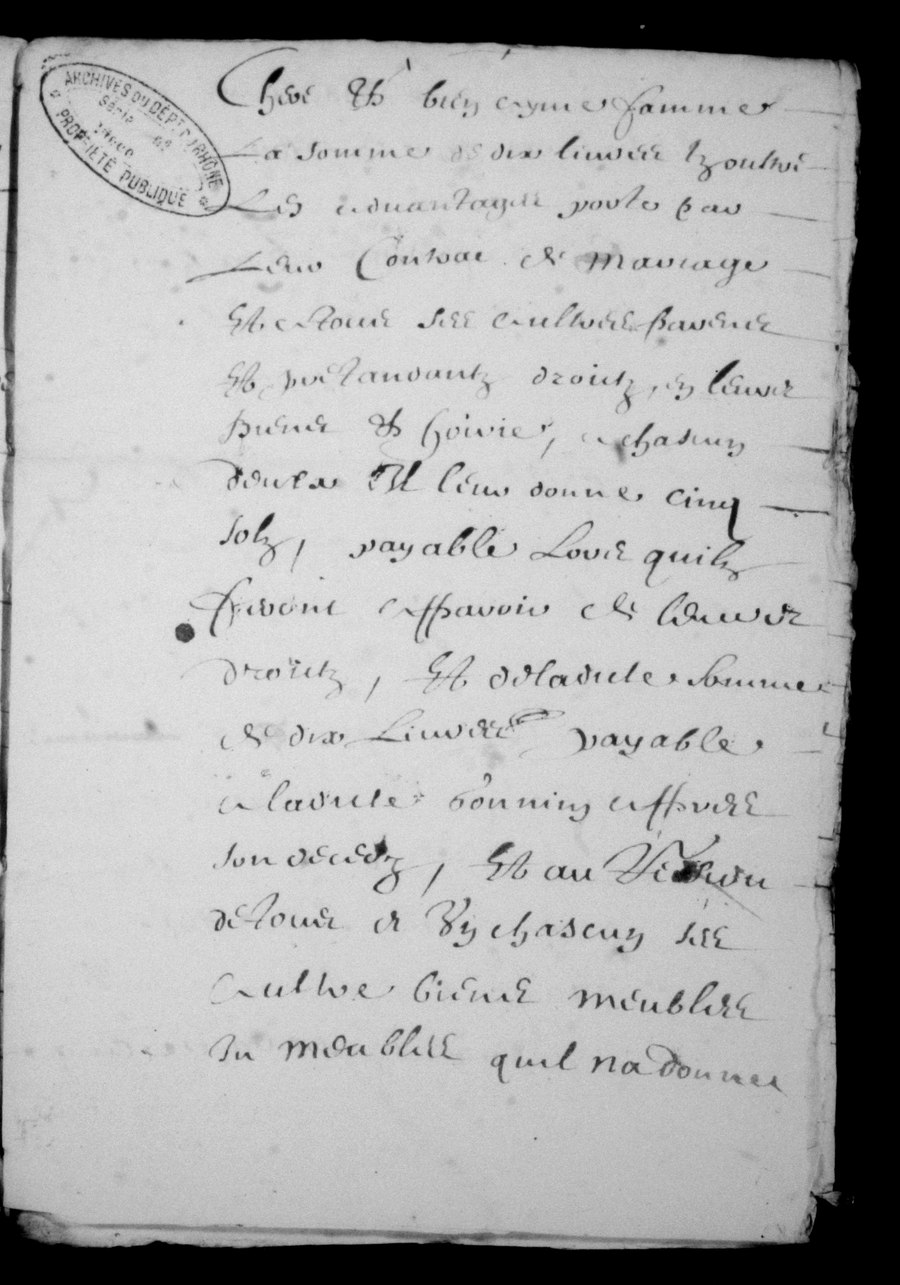 ARCHIVES DU DÉPT DU RHÔNE
PROPRIÉTÉ PUBLIQUE
Chere et bien ayme famme
La somme de dix livres oultre
Les advantages porte par
Leur Contrac de mariage
Et a tous ses aultres parens
Et pretandantz droictz, en leurs
biens et hoirie, a chascun
deulx Il leur donne cinq
solz, payable Lors quilz
feront apparoir de leurs
droictz, Et deladicte somme
de dix Livres payable
a ladicte Bonnin appres
son deces, Et au Residu
de tous et Ung chascun ses
aultre biens meubles
In meubles quil na donnes